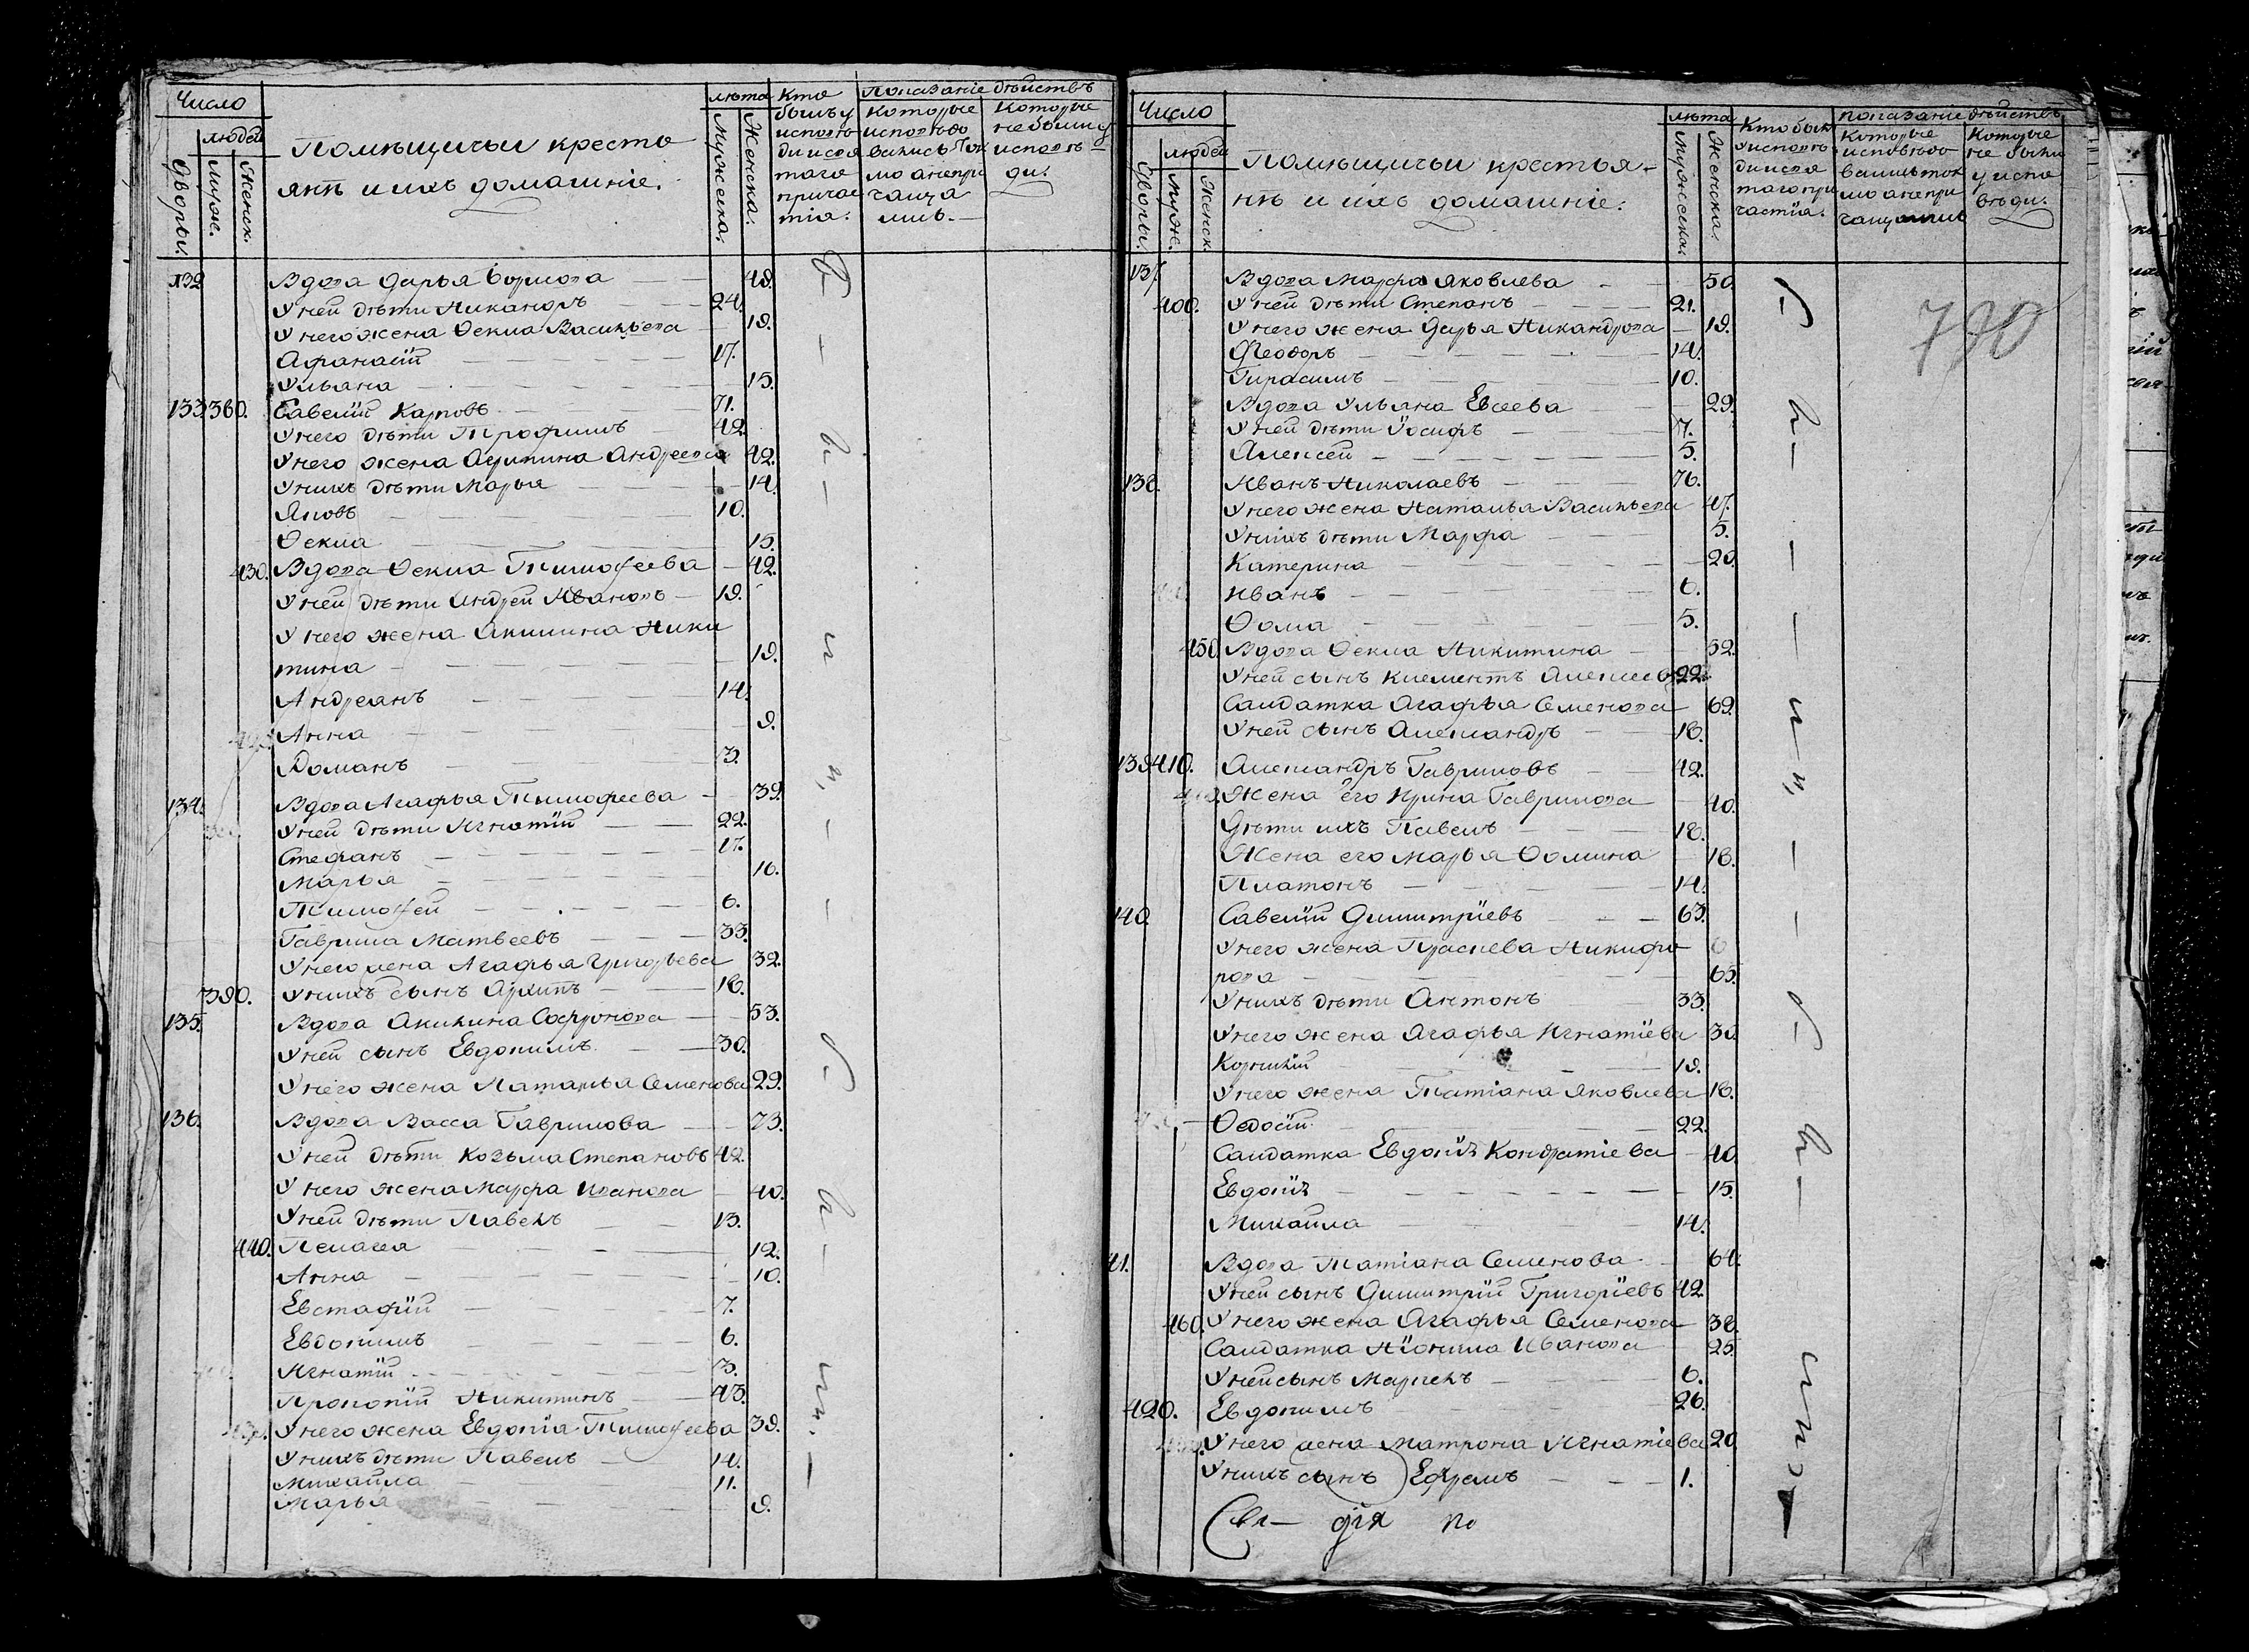 Число
людей
Дворы.
Муж.
Женск.
Помѣщичьи кресть
янѣ и ихъ домашніе.
лѣта
Мужеска.
Женска.
Кто
былъ у
исповѣ
ди и свя
таго
причас
тія.
Показаніе дѣйствъ
Которые
исповѣдо
вались ток
мо а непри
чаща
лись.
Которые
не были у
исповѣ
ди.
132
Вдова Дарья Борисова 48.
У ней дѣти Никаноръ 24.
У него жена Ѳекла Васильева 19.
Афанасій 17.
Ульяна 15.
133 360. Савелій Карповъ 71.
У него дѣти Трофимъ 42.
У него жена Акулина Андреева 42.
У нихъ дѣти Марья 14.
Яковъ 10.
Ѳекла 15.
430. Вдова Ѳекла Тимофеева 42.
У ней дѣти Андрей Ивановъ 19.
У него жена Акилина Ники
тина 19.
Андреянъ 14.
Анна 9.
Романъ 3.
134. Вдова Агафья Тимофеева 39.
У ней дѣти Игнатій 22.
Стефанъ 17.
Марья 16.
Тимофей 6.
Гаврила Матвеевъ 33.
У него жена Агафья Григорьева 32.
390. У нихъ сынъ Архипъ 16.
135. Вдова Акилина Софронова 53.
У ней сынъ Евдокимъ 30.
У него жена Наталья Семенова 29.
136. Вдова Васса Гаврилова 73.
У ней дѣти Козьма Степановъ 42.
У него жена Марфа Иванова 40.
У ней дѣти Павелъ 13.
440. Пелагея 12.
Анна 10.
Евстафій 7.
Евдокимъ 6.
Игнатій 3.
Прокопій Никитинъ 43.
У него жена Евдокіа Тимофеева 39.
У нихъ дѣти Павелъ 14.
Михайла 11.
Марья 9.
Число
людей
Дворы.
Муж.
Женск.
Помѣщичьи крестья-
нѣ и ихъ домашніе.
лѣта
Мужеска.
Женска.
Кто былъ
у исповѣ
ди и свя
таго при
частія.
показаніе дѣйствъ
Которые
исповѣдо
вались ток
мо а непри
чащались
Которые
не были
у испо
вѣди.
790
137. Вдова Марфа Яковлева 50
400. У ней дѣти Степанъ 21.
У него жена Дарья Никандрова 19.
Феодоръ 14.
Гирасимъ 10.
Вдова Ульяна Евсеева 29.
У ней дѣти Іосифъ 7.
Алексей 5.
138. Иванъ Николаевъ 76.
У него жена Наталья Васильева 47.
У нихъ дѣти Марфа 5.
Катерина 20.
Иванъ 6.
Ѳома 5.
450. Вдова Ѳекла Никитина 52.
У ней сынъ Клементъ Алексеевъ 22.
Салдатка Агафья Семенова 69.
У ней сынъ Александръ 18.
139 410. Александръ Гавриловъ 42.
Жена его Ирина Гаврилова 40.
Дѣти ихъ Павелъ 18.
Жена его Марья Ѳомина 18.
Платонъ 14.
140. Савелій Димитріевъ 63.
У него жена Прасковья Никифо
рова 65.
У нихъ дѣти Антонъ 33.
У него жена Агафья Игнатіева 30.
Корнилій 19.
У него жена Татіана Яковлева 18.
Ѳедосій 22.
Салдатка Евдокія Кондратіева 40.
Евдокія 15.
Михайла 14.
41. Вдова Татіана Семенова 64.
У ней сынъ Димитрій Григоріевъ 42.
460. У него жена Агафья Семенова 38.
Салдатка Иіонила Иванова 25.
У ней сынъ Маркелъ 6.
420. Евдокимъ 26.
У него жена Матрона Игнатіева 20.
У нихъ сынъ Ефремъ 1.